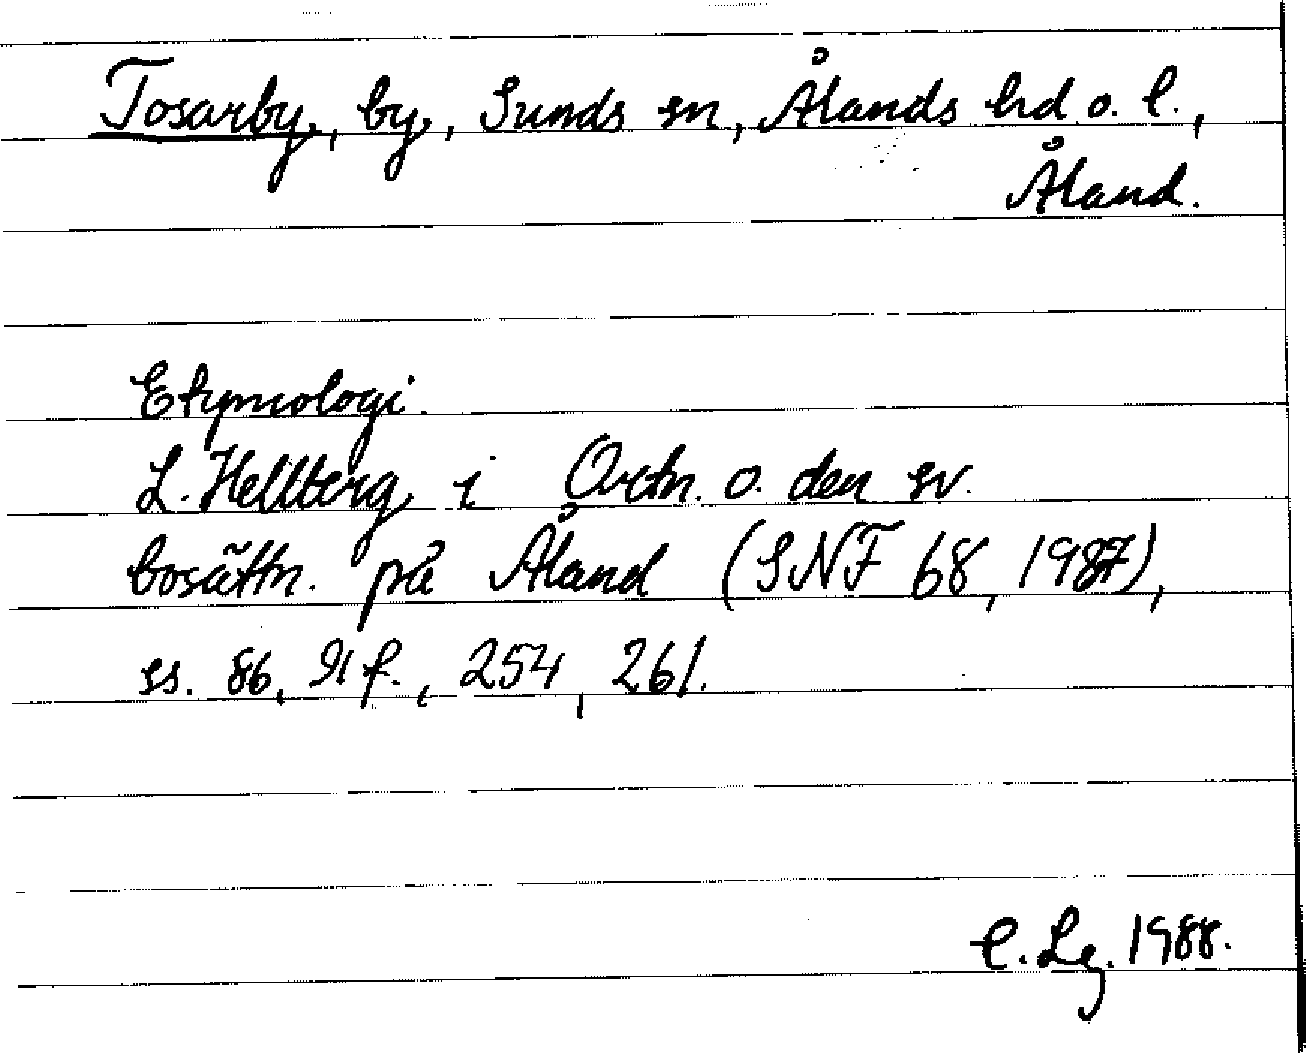 Tosarby, by, Sunds sn, Ålands hd o. l.,
Åland.
Etymologi.
L. Hellberg i Ortn. o. den sv.
bosättn. på Åland (SNF 68, 1987),
ss. 86, 91 f., 254, 261.
C. Lg. 1988.